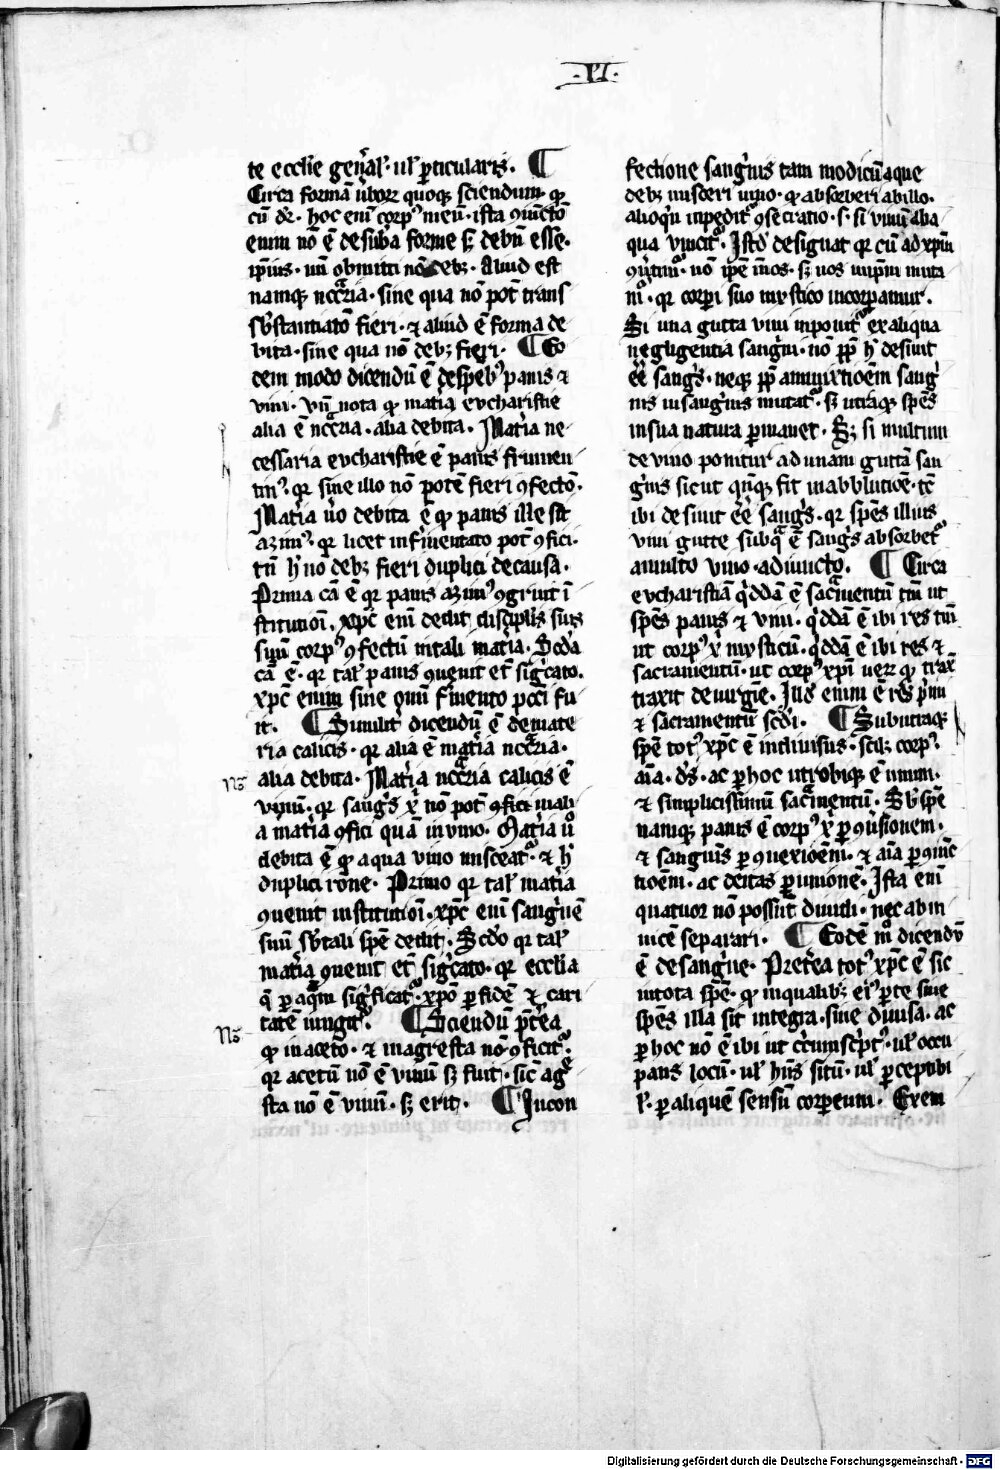 ·VI·
te eccl̄ie gen̄al'· ul' ꝑticularis. ¶
Circa formā ūborꝝ quoqꝫ sciendum· qꝫ
cū dr̄· hoc enī corpꝰ meū· ista ꝯiūctō
enim nō ē de suba forme sꝫ debū esse·
ip̄ius· uñ obmitti nō debꝫ· Aliud est
namqꝫ nccāria· sine qua nō pot̄ trans
sb̄stantiatō fieri· ⁊ aliud ē forma de
bita· sine qua nō debꝫ fieri· ¶ Eo
dem modo dicendū ē de spēbꝰ panis ⁊
vini· Vñ nota qꝫ matia eucharistie
alia ē nccāria· alia debita· Matia ne
cessaria eucharistie ē panis frumen
tinꝰ· qꝛ sine illo nō potē fieri ꝯfectō·
Matia ūo debita ē qꝫ panis ille sit
azimꝰ· qꝛ licet in fmentato pot̄ ꝯfici·
tn̄ h' nō debꝫ fieri duplici de causa·
Prima cā ē qꝛ panis azimꝰ ꝯgruit ī
stitutioī· xp̄c enī dedit discipl̄is suis
suū corpꝰ ꝯfectū in tali matia· Scd̄a
cā ē· qꝛ tal' panis ꝯuenit et̄ siḡcato·
xp̄c enim sine omī fmento pcc̄i fu
it· ¶ Similit̄ dicendū ē de mate
ria calicis· qꝛ alia ē matia nccāria·
Nō alia debita· Matia nccāria calicis ē
vinū· qꝛ sangs xp̄i nō pot̄ ꝯfici in ali
a matia ꝯfici quā in vino· Matia ūo
debita ē qꝫ aqua vino misceatꝰ· ⁊ h'
duplici rōne· Primo qꝛ tal' matia
ꝯuenit institutioī· xp̄c enī sanguinē
suū sb̄ tali spē dedit· Scd̄o qꝛ tal'
matia ꝯuenit et̄ siḡcato· qꝛ eccl̄ia
q̄ ꝑ aq̄m significatꝰ· xp̄o ꝑ fidē ⁊ cari
tatē iungitꝰ· ¶ Sciendū p̄tea
Nō qꝫ in acetō· ⁊ in agresta nō ꝯficitꝰ·
qꝛ acetū nō ē vinū sꝫ fuit· sic agre
sta nō ē vinū· sꝫ erit· ¶ In con
fectione sanguis tam modicū aque
debꝫ misceri vino· qꝫ absorberi ab illo·
alioqn inpeditꝰ ꝯsecratio· s· si vinū ab a
qua vincitꝰ· Istd' designat qꝛ cū ad xp̄m
ꝯuertimꝰ· nō ip̄e in nos· sꝫ nos in ip̄m muta
mꝰ· qꝛ corpi suo mystico incorpamur·
Si una gutta vini inponitꝰ ex aliqua
negligentia sangini· nō ꝓp̄ h' desinit
eē sangs· neqꝫ ꝓp̄ ammixtioēm sang
nis in sanginis mutatꝰ· sꝫ utraqꝫ spēs
in sua natura ꝑmanet· Sꝫ si multum
de vino ponitur ad unam guttā san
ginis sicut qn̄qꝫ fit in abblutioē· tē
ibi desinit eē sangs· qꝛ spēs illius
vini gutte sub qua ē sangs absorbetꝰ
a multo vino adiunctō· ¶ Circa
eucharistiā qddā ē sacmentū tm̄ ut
spēs panis ⁊ vini· qddā ē ibi res tm̄
ut corpꝰ xp̄i mysticū· qddā ē ibi res ⁊
sacramentū· ut corpꝰ xp̄i verꝝ qꝫ trax
traxit de virgie· Illd' enim ē res p̄mi
⁊ sacramentū scd̄i· ¶ Sub utraqꝫ
spē totꝰ xp̄c ē indiuisus· scilꝫ corpꝰ·
aīa· ds̄· ac ꝑ hoc utrobiqꝫ ē unum·
⁊ simplicissimū sacmentū· Sb̄ spē
namqꝫ panis ē corpꝰ xp̄i ꝑ ꝯūsionem·
⁊ sanguis ꝑ ꝯnexioēm· ⁊ aīa ꝑ ꝯiunc
tioēm· ac deitas ꝑ unionē· Ista enī
quatuor nō possūt diuidi· nec ab in
uicē separari· ¶ Eodē mō dicendū
ē de sangine· Pretea totꝰ xp̄c ē sic
in tota spē· qꝫ in qualibꝫ eiꝰ ꝑte siue
spēs illa sit integra· siue diuisa· ac
ꝑ hoc nō ē ibi ut circumscptꝰ· ul' occu
pans locū· ul' hn̄s sitū· ul' ꝑceptibi
l'· ꝑ aliquē sensū corpeum· Exem
Digitalisierung gefördert durch die Deutsche Forschungsgemeinschaft · DFG